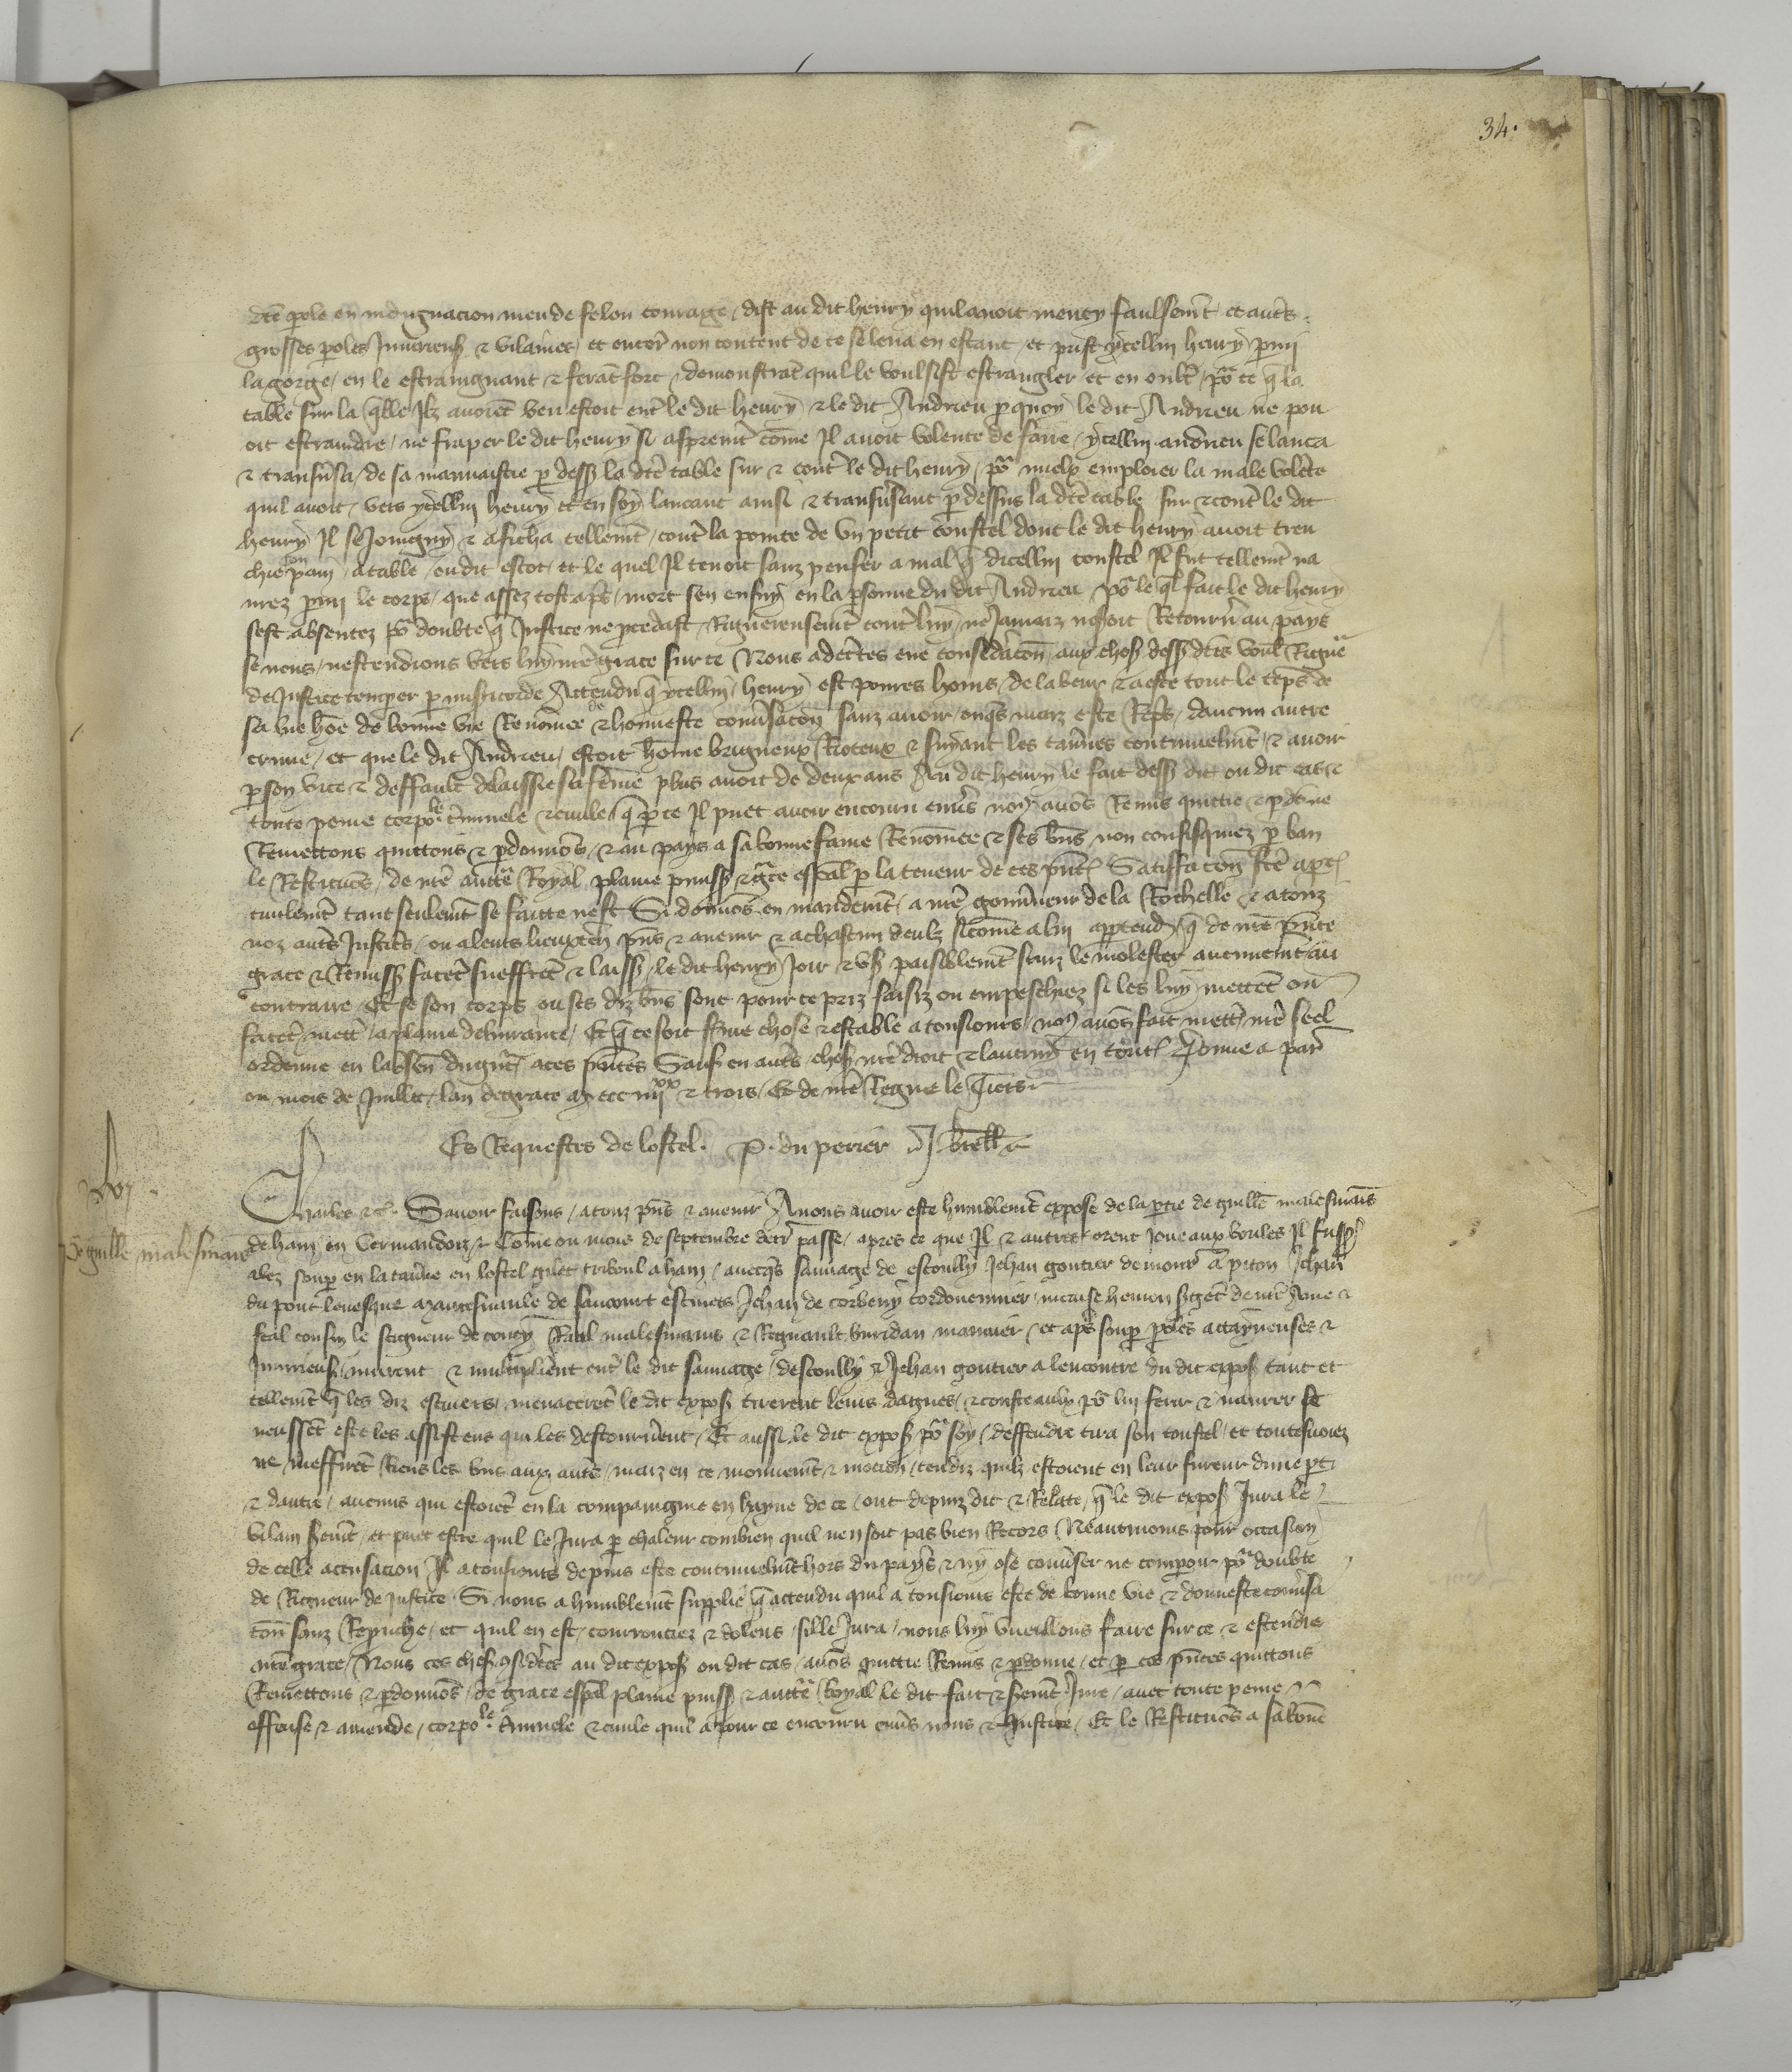 34.
dce parole en indignacion meu de felon courage / dist au dit henry quil avoit menty faulsemt et autrs
grosses paroles Iniurieuses & vilaines / et encor non content de ce se leva en estant / et prist ycellui henry parmi
la gorge / en le estraingnant & serãt fort / demonstrãt quil le voulsist estrangler / et en oultr / pour ce q la
table sur la qlle Ilz avoiẽt beu estoit entr le dit henry & le dit Andrieu par quoy le dit Andrieu ne pou
oit estraindre / ne fraper le dit henry si aspremt cõme Il avoit volente de faire / ycellui andrieu se lanca
& transversa / de sa mauvaistie par dess la dce table sur & contr le dit henry / pour mielx emploier la male volẽte
quil avoit / vers ycellui henry et en soy lancant ainsi & transversant par dessus la dce table sur & contr le dit
henry Il se Joingny & aficha tellemt / contr la pointe de un petit coustel dont le dit henry avoit tren
chie son pain / a table / ou dit escot / et le quel Il tenoit sanz penser a mal q dicellui coustel Il fut tellemt na
vrez parmi le corps / que assez tost aprs / mort sen ensuy en la personne du dit Andrieu / pour le ql fait le dit henry
sest absentez pour doubte q Justice ne procedast / Rigoureusemt contr luy / ne Jamaiz noseroit Retournr au pays
se nous / nestendions vers luy nre grace sur ce Nous adcertes eue consideracon aux choses dess dces voul Rigueur
de Justice temper par misericorde Attendu q ycellui henry est povres homs / de labeur & a este tout le tẽps de
sa vie hõe de bonne vie Renõmee & de honneste conversacon sanz avoir / onqs maiz este Repris / daucun autre
crime / et que le dit Andrieu / estoit hõme brigueux Rioteux & suyant les tavrnes continuelmt / & avoit
par son vice & deffault delaissie sa fẽme plus avoit de deux ans Au dit henry le fait dess dit ou dit cas &
toute peine corporele criminele & civile q par ce Il puet avoir encouru envers nous avons Remis quittie & pardonne
Remettons quittons & pardonnons / & au pays a sa bonne fame Renõmee & ses biens non confisquiez par ban
le Restituons / de nre auctte Royal plaine puiss & grace espãl par la teneur de ces pntes Satisfacion fcte a partie
civilemt tant seulemt se faitte nest Si donnons en mandemt / a nre gouvrneur de la Rochelle & a touz
noz autrs Justicrs / ou a leurs lieuxten pns & avenir & a chascun deulz si cõme a lui appartendra q de nre pnte
grace & Remission facẽt sueffrẽt & laissẽt / le dit henry Joir & user paisiblemt sanz le molester aucunemt au
contraire Et se son corps ou ses diz biens sont pour ce priz saisiz ou empeschiez si les luy mettẽt ou
facẽt mettr / a plaine delivrance / Et q ce soit ferme chose & estable a tousiours / nous avons fait mettr nre seel
ordenne en labsence du grant / a ces pntes Sauf en autrs choses nre droit & lautruy en toutes Donne a paris
ou mois de Juillet / lan de grace m ccc iiii xx & trois / Et de nre Regne le Tiers
Es Requestes de lostel. P. du perier J. 
xlvi.
pro guille malesmais
Charles &c. Savoir faisons / a touz pns & avenir A nous avoir este humblemt expose de la partie de guille malesmais
de ham en Vermandoiz / Cõme ou mois de septembre dern passe / apres ce que Il & autres orent Joue aux boules Il fuss
alez soupr en la tavrne en lostel guiot triboul a ham / avecqs sauvage de escouilly Jehan goutier de mont a piton Jehan
du pont levesque de saucourt escuiers Jehan de corbeny cordouennier henion sergẽt de nre Ame &
feal cousin le seigneur de coucy Raul malesmains & Regnault buridan / et aprs soupr paroles attayneuses &
Iniurieuses / murent & multiplierent entr le dit sauvage / descouilly & Jehan goutier a lencontre du dit exposant tant et
tellemt q les diz escuiers / menacerẽt le dit exposant tirerent leurs dagues / & cousteaulx pour lui ferir & navrer se
neussẽt este les assistens qui les destournerent / Et aussi le dit exposant pour soy / deffendre tira son coustel / et toutesvoiez
ne / meffirẽt Riens les uns aux autrs / maiz en ce mouvemt & mocion / tendiz quilz estoient en leur fureur dune part
& dautre / aucuns qui estoiẽt en la compaingnie en hayne de ce / ont depuiz dit & Relate / q le dit exposant Jura le
vilain sermt / et puet estre quil le Jura par chaleur combien quil nen soit pas bien Recors Neantmoins pour occasion
de celle accusacion Il a tousiours depuis este continuelmt hors du pays & ny ose converser ne comparoir pour doubte
de Rigueur de Justice Si nous a humblemt supplie q attendu quil a tousiours este de bonne vie & donneste conversa
cion sanz Reprouche / et quil en est / courrouciez & dolens sille Jura / nous luy vueillons faire sur ce & estendre
nre grace / Nous ces choses considerees au dit exposant ou dit cas / avons quittie Remis & pardonne / et par ces pntes quittons
Remettons & pardonnons / de grace espãl plaine puiss & auctte Royal le dit fait & sermt Jure / avec toute peine
offense & amende / corporele criminele & civile quil a pour ce encouru envers nous & Justice / Et le Restituons a sa bonne